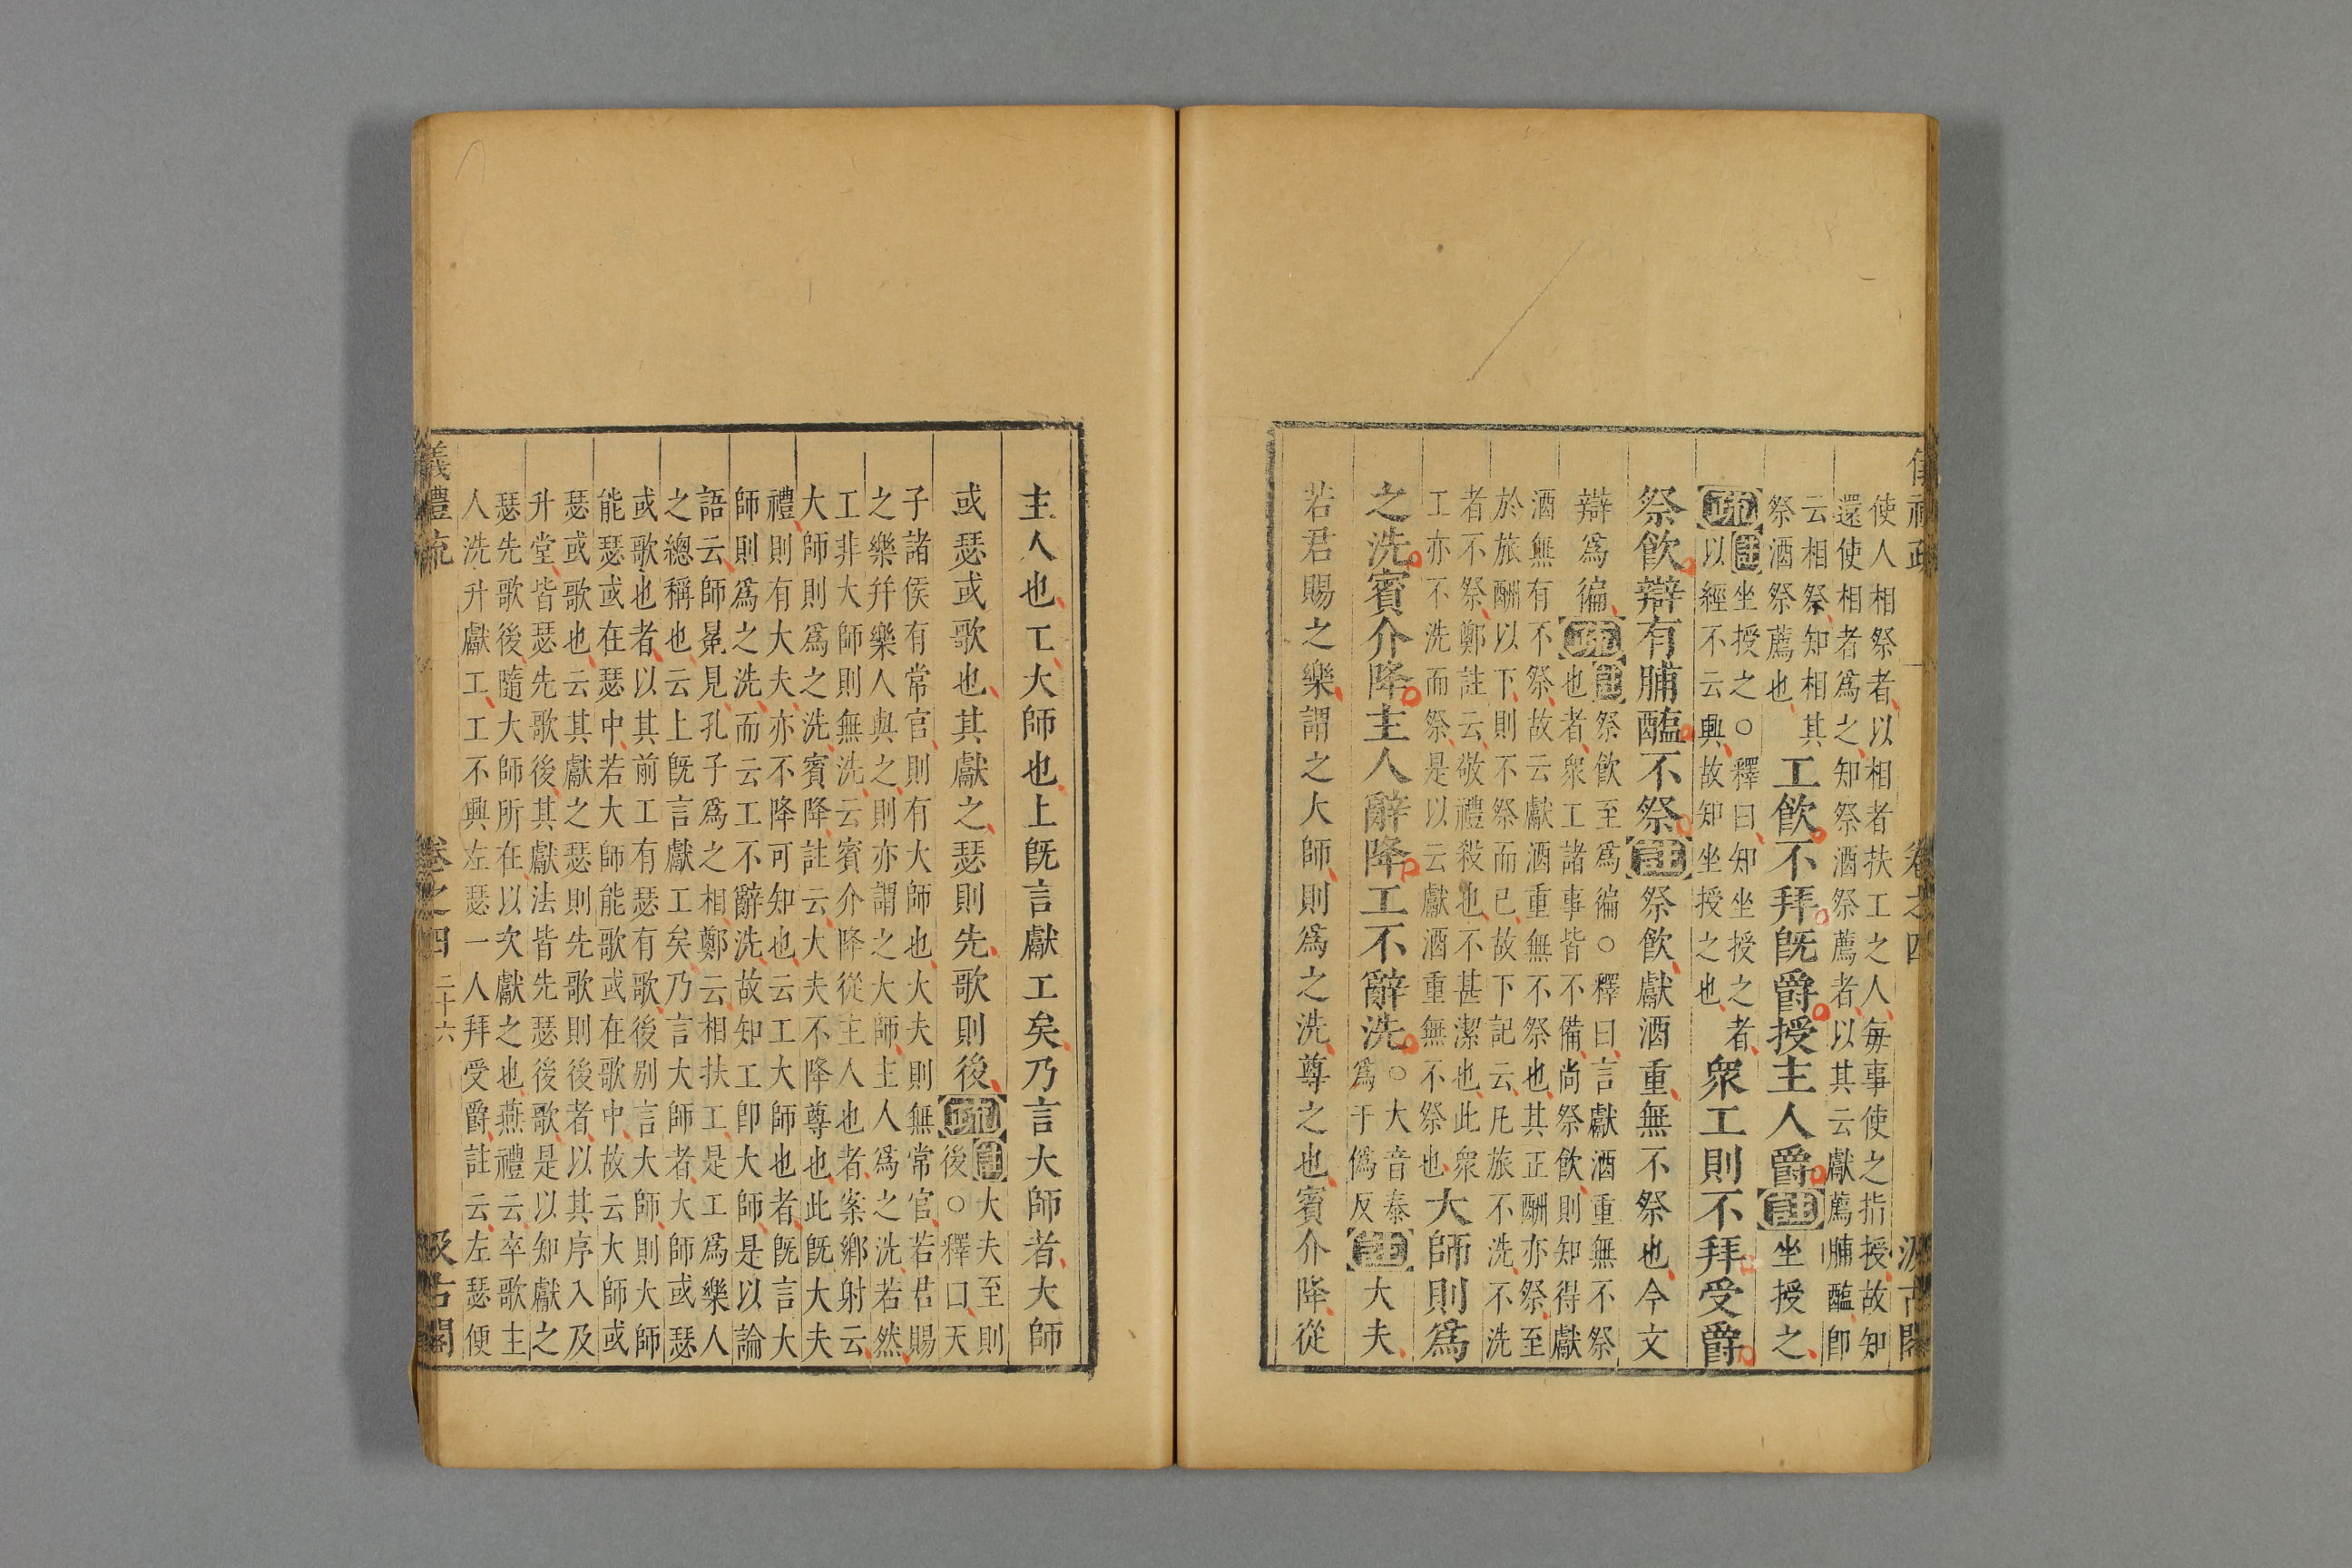 使人相祭者以相者扶工之人每事使之指授故知
還使相者爲之知祭酒祭薦者以其云獻薦脯醢卽
云相祭知相其
祭酒祭薦也
工飮不拜旣爵授主人爵註坐授之
疏註坐授之○釋曰知坐授之者
以經不云興故知坐授之也
衆工則不拜受爵
祭飮辯有脯醢不祭註祭飮獻酒重無不祭也今文
辯爲徧疏註祭飮至爲徧○釋曰言獻酒重無不祭
也者衆工諸事皆不備尚祭飮則知得獻
酒無有不祭故云獻酒重無不祭也其正酬亦祭至
於旅酬以下則不祭而已故下記云凡旅不洗不洗
者不祭鄭註云敬禮殺也不甚潔也此衆
工亦不洗而祭是以云獻酒重無不祭也
大師則爲
之洗賓介降主人辭降工不辭洗○大音泰
爲于僞反
註大夫
若君賜之樂謂之大師則爲之洗尊之也賓介降從
主人也工大師也上旣言獻工矣乃言大師者大師
或瑟或歌也其獻之瑟則先歌則後疏註大夫至則
後○釋曰天
子諸侯有常官則有大師也大夫則無常官若君賜
之樂幷樂人與之則亦謂之大師主人爲之洗若然
工非大師則無洗云賓介降從主人也者案鄉射云
大師則爲之洗賓降註云大夫不降尊也此旣大夫
禮則有大夫亦不降可知也云工大師也者旣言大
師則爲之洗而云工不辭洗故知工卽大師是以論
語云師冕見孔子爲之相鄭云相扶工是工爲樂人
之總稱也云上旣言獻工矣乃言大師者大師或瑟
或歌也者以其前工有瑟有歌後別言大師則大師
能瑟或在瑟中若大師能歌或在歌中故云大師或
瑟或歌也云其獻之瑟則先歌則後者以其序入及
升堂皆瑟先歌後其獻法皆先瑟後歌是以知獻之
瑟先歌後隨大師所在以次獻之也燕禮云卒歌主
人洗升獻工工不興左瑟一人拜受爵註云左瑟便
儀禮疏 卷之四 二十六 汲古閣